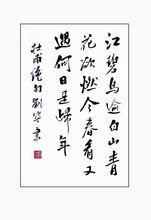 江碧鸟逾白山青
花欲燃今春看又
过何日是归年
杜甫绝句刘
书